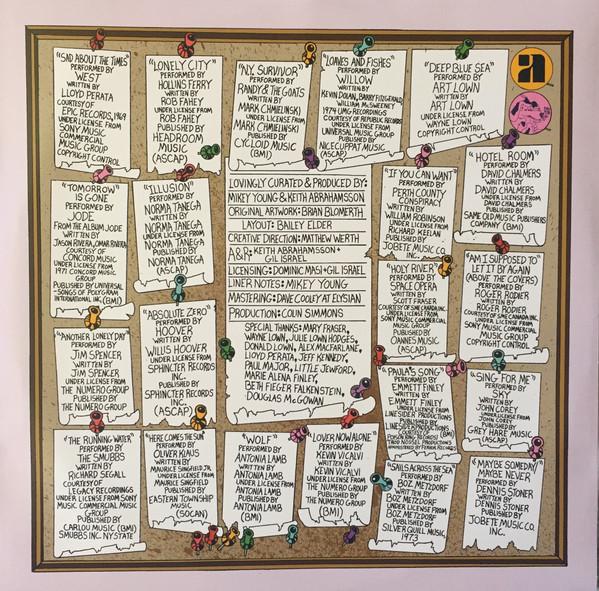 "SAD ABOUT THE TIMES"
PERFORMED BY
WEST
WRITTEN BY
LLOYD PERATA
COURTESY OF
EPIC RECORDS, 1969
UNDER LICENSE FROM
SONY MUSIC
COMMERCIAL
MUSIC GROUP
COPYRIGHT CONTROL
"LONELY CITY"
PERFORMED BY
HOLLINS FERRY
WRITTEN BY
ROB FAHEY
UNDER LICENSE FROM
ROB FAHEY
PUBLISHED BY
HEADROOM
MUSIC
(ASCAP)
"N.Y. SURVIVOR"
PERFORMED BY
RANDY & THE GOATS
WRITTEN BY
MARK CHMIELINSKI
UNDER LICENSE FROM
MARK CHMIELINSKI
PUBLISHED BY
CYCLOID MUSIC
(BMI)
"LOAVES AND FISHES"
PERFORMED BY
WILLOW
WRITTEN BY
KEVIN DOLAN, BARRY FITZGERALD
WILLIAM McSWEENEY
1974 UMG RECORDINGS
COURTESY OF REPUBLIC RECORDS
UNDER LICENSE FROM
UNIVERSAL MUSIC GROUP
PUBLISHED BY
NICECUPPAT MUSIC
(ASCAP)
"DEEP BLUE SEA"
PERFORMED BY
ART LOWN
WRITTEN BY
ART LOWN
UNDER LICENSE FROM
WAYNE LOWN
COPYRIGHT CONTROL
a
"TOMORROW
IS GONE"
PERFORMED BY
JODE
FROM THE ALBUM JODE
WRITTEN BY
JASON RIVERA, OMAR RIVERA
COURTESY OF
CONCORD MUSIC
UNDER LICENSE FROM
1971 CONCORD MUSIC
GROUP
PUBLISHED BY UNIVERSAL
-SONGS OF POLYGRAM
INTERNATIONAL INC. (BMI)
"ILLUSION"
PERFORMED BY
NORMA TANEGA
WRITTEN BY
NORMA TANEGA
UNDER LICENSE FROM
NORMA TANEGA
PUBLISHED BY
NORMA TANEGA
(ASCAP)
LOVINGLY CURATED & PRODUCED BY:
MIKEY YOUNG & KEITH ABRAHAMSSON
ORIGINAL ARTWORK: BRIAN BLOMERTH
LAYOUT: BAILEY ELDER
CREATIVE DIRECTION: MATTHEW WERTH
A&R: KEITH ABRAHAMSSON +
GIL ISRAEL
LICENSING: DOMINIC MASI + GIL ISRAEL
LINER NOTES: MIKEY YOUNG
MASTERING: DAVE COOLEY AT ELYSIAN
PRODUCTION: COLIN SIMMONS
SPECIAL THANKS: MARY FRASER,
WAYNE LOWN, JULIE LOWN HODGES,
DONALD LOWN, ALEX MACFARLANE,
LLOYD PERATA, JEFF KENNEDY,
PAUL MAJOR, LITTLE JEWFORD,
MARIE ALENA FINLEY,
BETH FIEGER FALKENSTEIN,
DOUGLAS McGOWAN
"IF YOU CAN WANT"
PERFORMED BY
PERTH COUNTY
CONSPIRACY
WRITTEN BY
WILLIAM ROBINSON
UNDER LICENSE FROM
RICHARD KEELAN
PUBLISHED BY
JOBETE MUSIC CO.
INC.
"HOTEL ROOM"
PERFORMED BY
DAVID CHALMERS
WRITTEN BY
DAVID CHALMERS
UNDER LICENSE FROM
DAVID CHALMERS
PUBLISHED BY
SAME OLD MUSIC PUBLISHERS
COMPANY (BMI)
"HOLY RIVER"
PERFORMED BY
SPACE OPERA
WRITTEN BY
SCOTT FRASER
COURTESY OF SME CANADA INC.
UNDER LICENSE FROM
SONY MUSIC COMMERCIAL
MUSIC GROUP
PUBLISHED BY
OANNES MUSIC
(ASCAP)
"AM I SUPPOSED TO
LET IT BY AGAIN
(ABOVE THE COVERS)"
PERFORMED BY
ROGER RODIER
WRITTEN BY
ROGER RODIER
COURTESY OF SME CANADA INC.
UNDER LICENSE FROM
SONY MUSIC COMMERCIAL
MUSIC GROUP
COPYRIGHT CONTROL
"ABSOLUTE ZERO"
PERFORMED BY
HOOVER
WRITTEN BY
WILLIS HOOVER
UNDER LICENSE FROM
SPHINCTER RECORDS
INC.
PUBLISHED BY
SPHINCTER RECORDS
INC.
(ASCAP)
"ANOTHER LONELY DAY"
PERFORMED BY
JIM SPENCER
WRITTEN BY
JIM SPENCER
UNDER LICENSE FROM
THE NUMERO GROUP
PUBLISHED BY
THE NUMERO GROUP
"PAULA'S SONG"
PERFORMED BY
EMMETT FINLEY
WRITTEN BY
EMMETT FINLEY
UNDER LICENSE FROM
LINESIDER PRODUCTIONS
PUBLISHED BY
LINESIDER PRODUCTIONS
(BMI)
"SING FOR ME"
PERFORMED BY
SKY
WRITTEN BY
JOHN COREY
UNDER LICENSE FROM
JOHN COREY
PUBLISHED BY
GREY HARE MUSIC
(ASCAP)
"THE RUNNING WATER"
PERFORMED BY
THE SMUBBS
WRITTEN BY
RICHARD SEGALL
COURTESY OF
LEGACY RECORDINGS
UNDER LICENSE FROM SONY
MUSIC COMMERCIAL MUSIC
GROUP
PUBLISHED BY
CARLOU MUSIC (BMI)
SMUBBS INC. NY STATE
"HERE COMES THE SUN"
PERFORMED BY
OLIVER KLAUS
WRITTEN BY
MAURICE SINGFIELD JR.
UNDER LICENSE FROM
MAURICE SINGFIELD
PUBLISHED BY
EASTERN TOWNSHIP
MUSIC
(SOCAN)
"WOLF"
PERFORMED BY
ANTONIA LAMB
WRITTEN BY
ANTONIA LAMB
UNDER LICENSE FROM
ANTONIA LAMB
PUBLISHED BY
ANTONIA LAMB
(BMI)
"LOVER NOW ALONE"
PERFORMED BY
KEVIN VICALVI
WRITTEN BY
KEVIN VICALVI
UNDER LICENSE FROM
THE NUMERO GROUP
PUBLISHED BY
THE NUMERO GROUP
(BMI)
"SAILS ACROSS THE SEA"
PERFORMED BY
BOZ METZDORF
WRITTEN BY
BOZ METZDORF
UNDER LICENSE FROM
BOZ METZDORF
PUBLISHED BY
SILVER QUILL MUSIC
1973
"MAYBE SOMEDAY/
MAYBE NEVER"
PERFORMED BY
DENNIS STONER
WRITTEN BY
DENNIS STONER
PUBLISHED BY
JOBETE MUSIC CO.
INC.